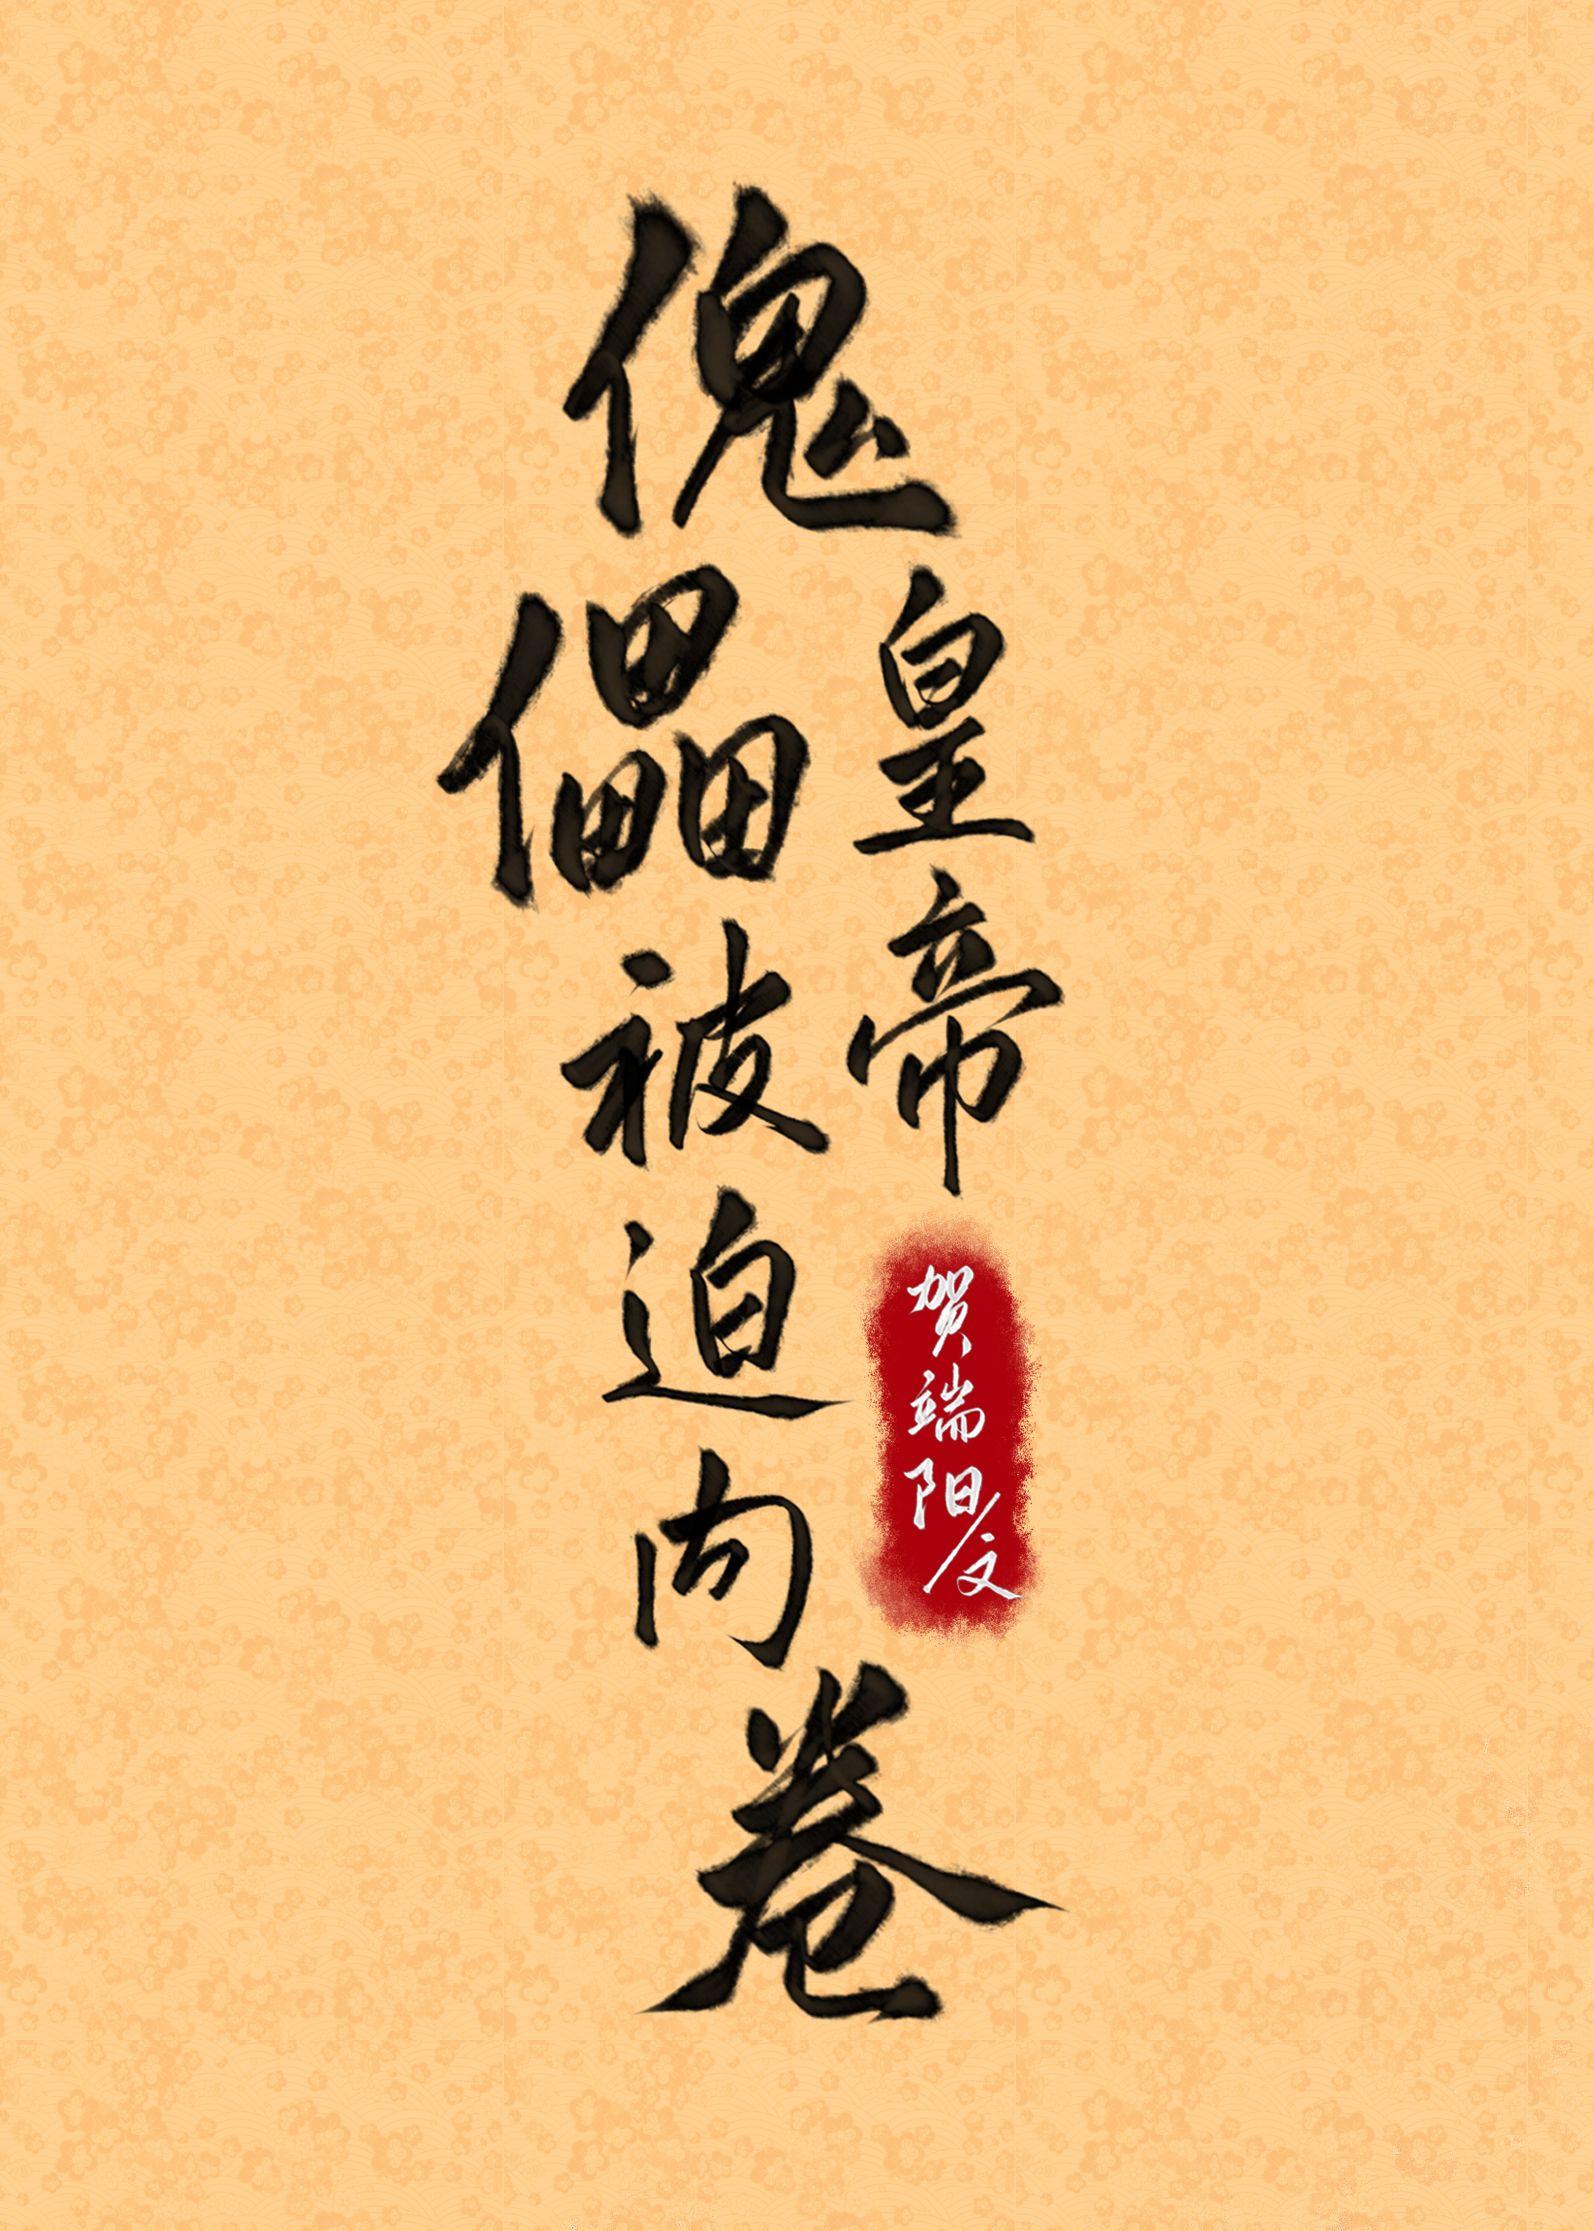 傀儡
皇帝
被迫内卷
贺端阳/文